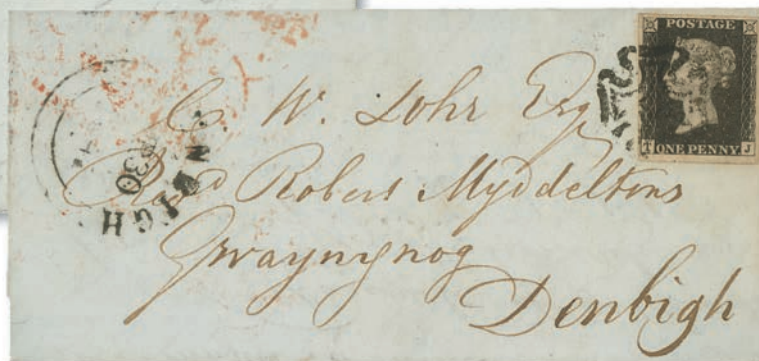 POSTAGE
T ONE PENNY J
C. W. Lohr Esq
Robert Myddeltons
Gwaynynog
Denbigh
NBIGH
30